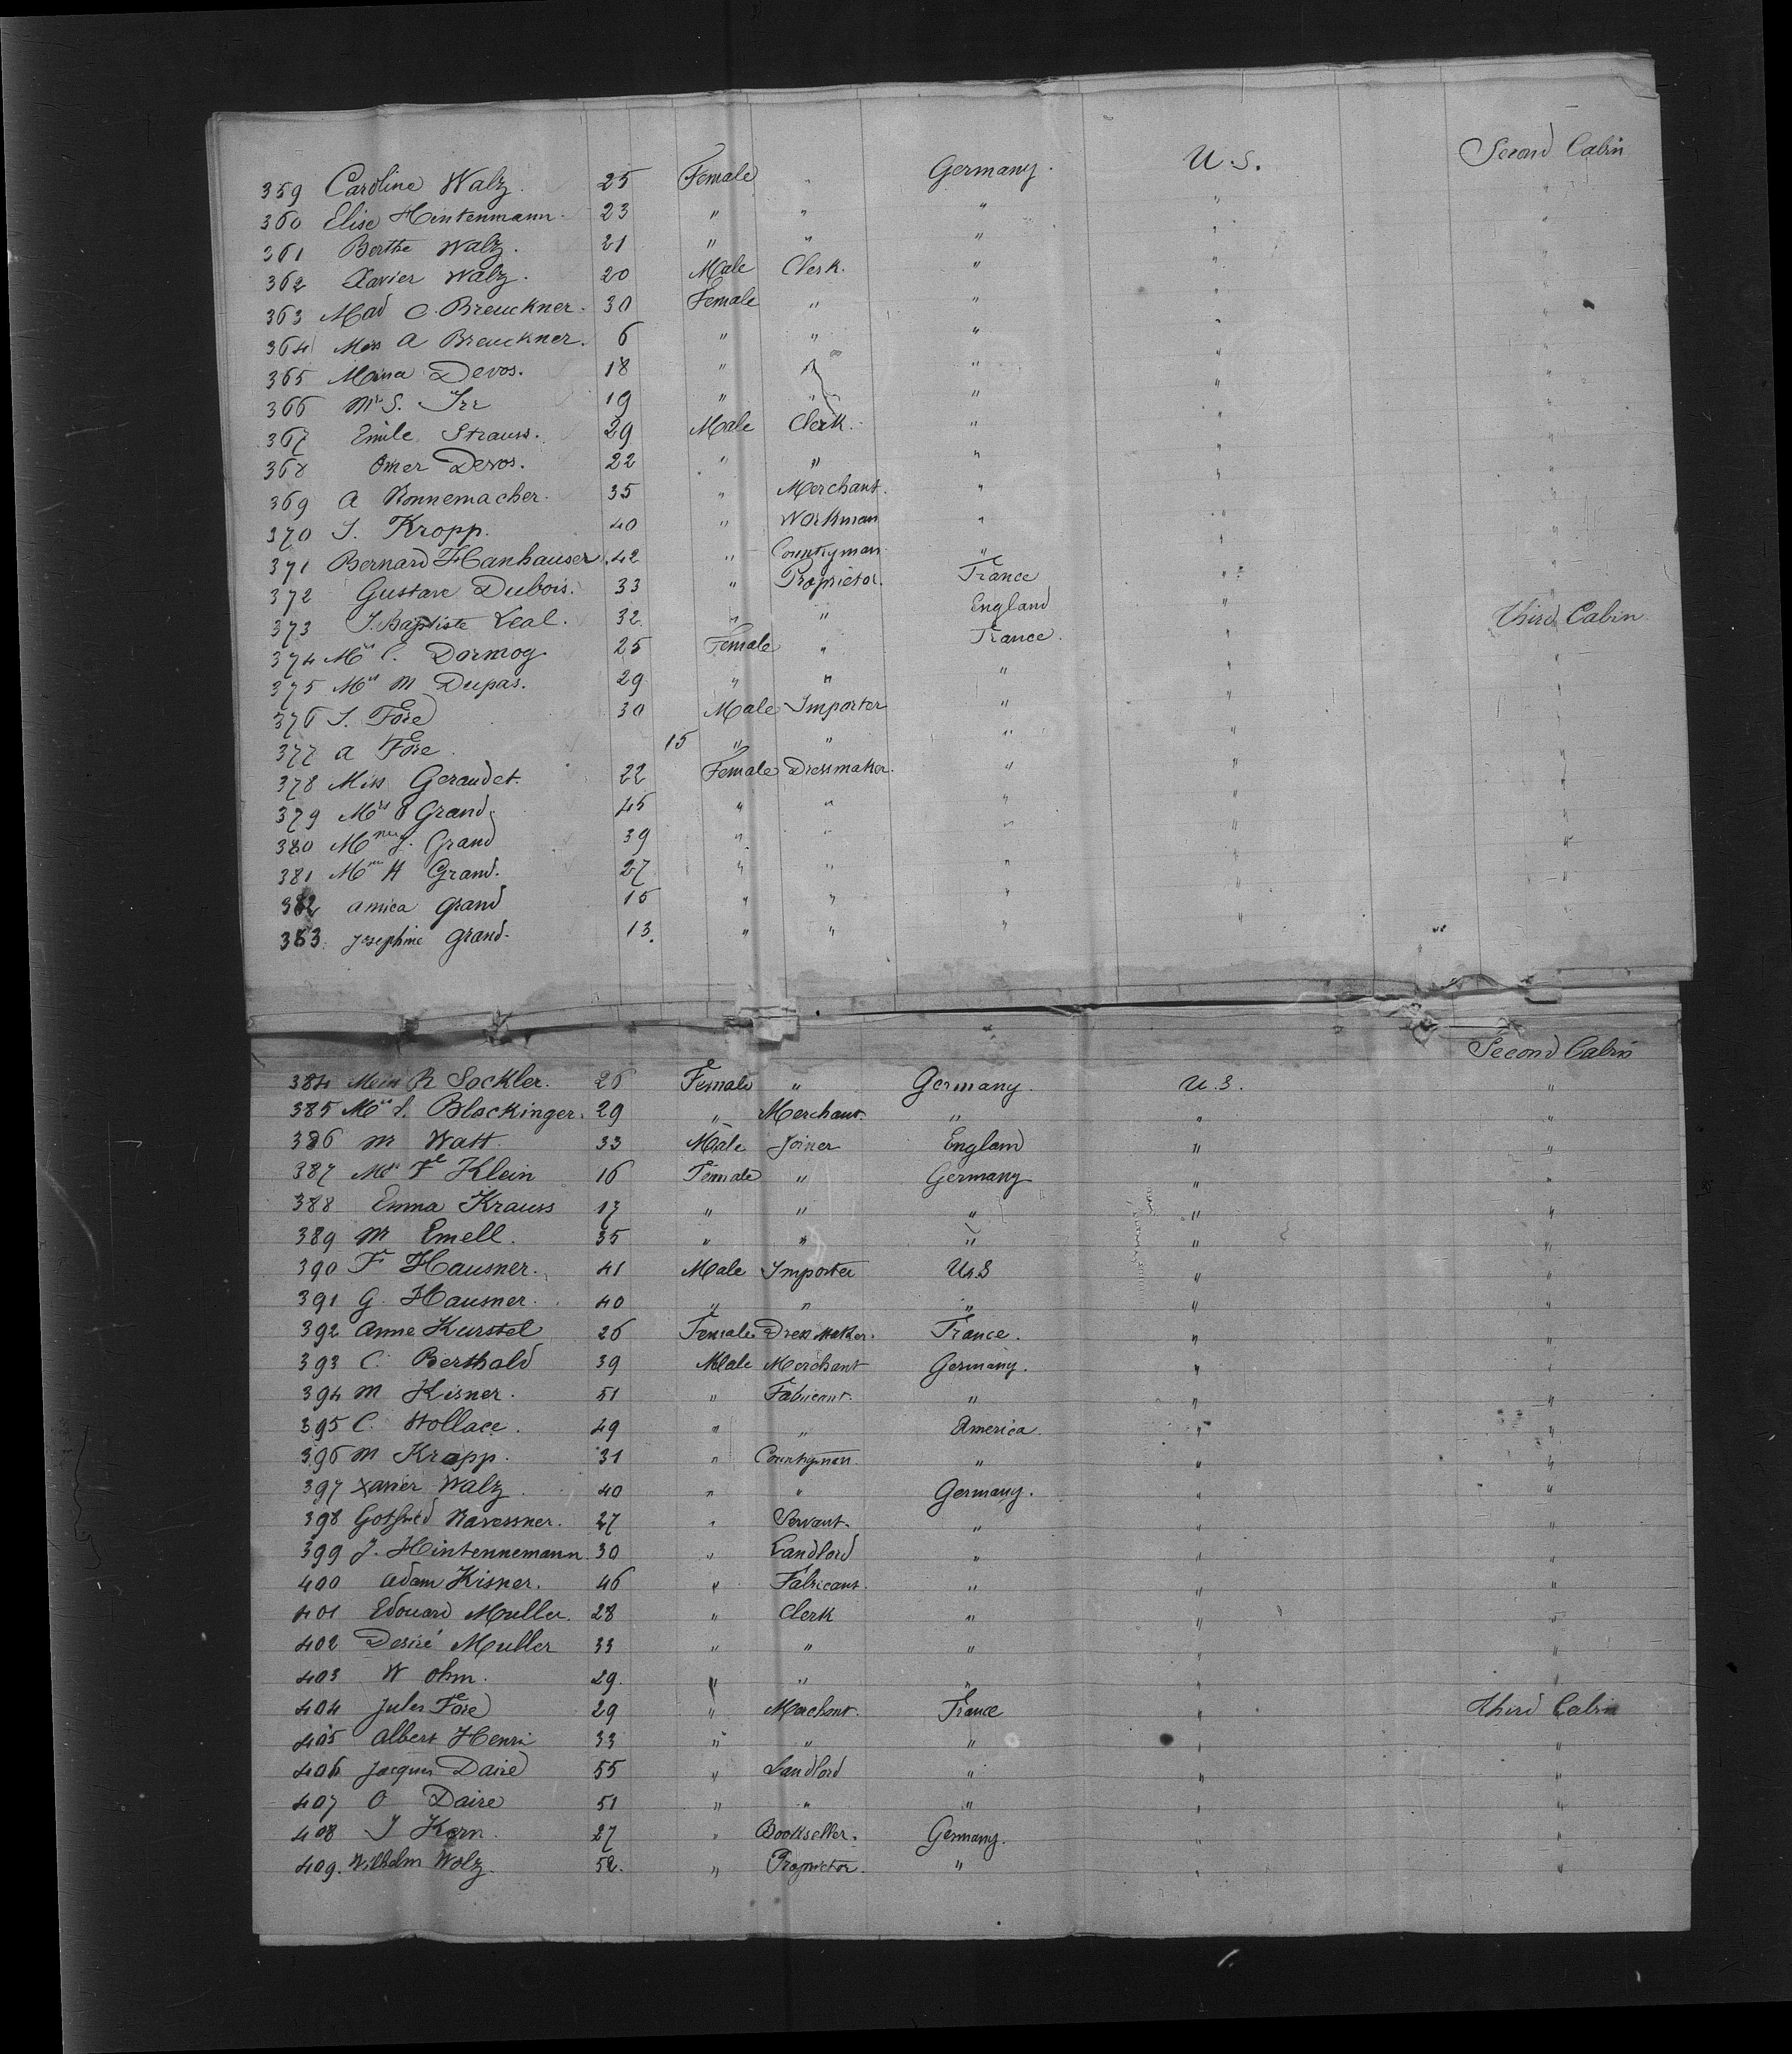 Second Cabin
359 Caroline Walz. 25 Female " Germany. U.S. "
360 Elise Hintenmann. 23 " " " " "
361 Berthe Walz. 21 " " " " "
362 Xavier Walz. 20 Male Clerk. " " "
363 Mad C. Breuckner. 30 Female " " " "
364 Miss A Breuckner. 6 " " " " "
365 Devos. 18 " " " " "
366 S. Irr 19 " " " " "
367 Emile Strauss. 29 Male Clerk. " " "
368 Omer Devos. 22 " " " " "
369 A Ronnemacher. 35 " Merchant. " " "
370 J. Kropp. 40 " Workman " " "
371 Bernard Hanhauser. 42 " Countryman " " "
372 Gustave Dubois. 33 " Proprietor. France " "
373 J. Baptiste Leal. 32 " " England " Third Cabin
374 C. Dormog. 25 Female " France. " "
375 M Dupas. 29 " " " " "
376 J. Fore 30 Male Importer " " "
377 A Fore. 15 " " " " "
378 Miss Geraudet. 22 Female Dressmaker. " " "
379 Grand. 45 " " " " "
380 J. Grand 39 " " " " "
381 H Grand. 27 " " " " "
382 Amica Grand 15 " " " " "
383. Josephine Grand. 13. " " " " "
Second Cabin
384 R Sockler. 26 Female " Germany. U.S. "
385 Blockinger. 29 " Merchant. " " "
386 M Watt 33 Male Joiner England " "
387 Klein 16 Female " Germany " "
388 Emma Krauss 17 " " " " "
389 M Emell. 35 " " " " "
390 F Hausner. 41 Male Importer U.S " "
391 G. Hausner. 40 " " " " "
392 Anne Kurstel 26 Female Dress Maker. France. " "
393 C. Berthald 39 Male Merchant Germany. " "
394 M Kisner. 51 " Fabricant. " " "
395 C. Wollace. 49 " " America. " "
396 M Kropp. 31 " Countryman. " " "
397 Xavier Walz. 40 " " Germany. " "
398 Gotfried Navessner. 27 " Servant. " " "
399 J. Hintennemann. 30 " Landlord " " "
400 Adam Kisner. 46 " Fabricant. " " "
401 Edouard Muller. 28 " Clerk " " "
402 Desiré Muller 33 " " " " "
403 W Ohm. 29. " " " " "
404 Jules Fore 29 " Merchant. France " Third Cabin
405 Albert Henri 33 " " " " "
406 Jacques Daire 55 " Landlord " " "
407 O Daire 51 " " " " "
408 J Kern. 27 " Bookseller. Germany. " "
409. Wilhelm Wolz. 52. " Proprietor. " " "